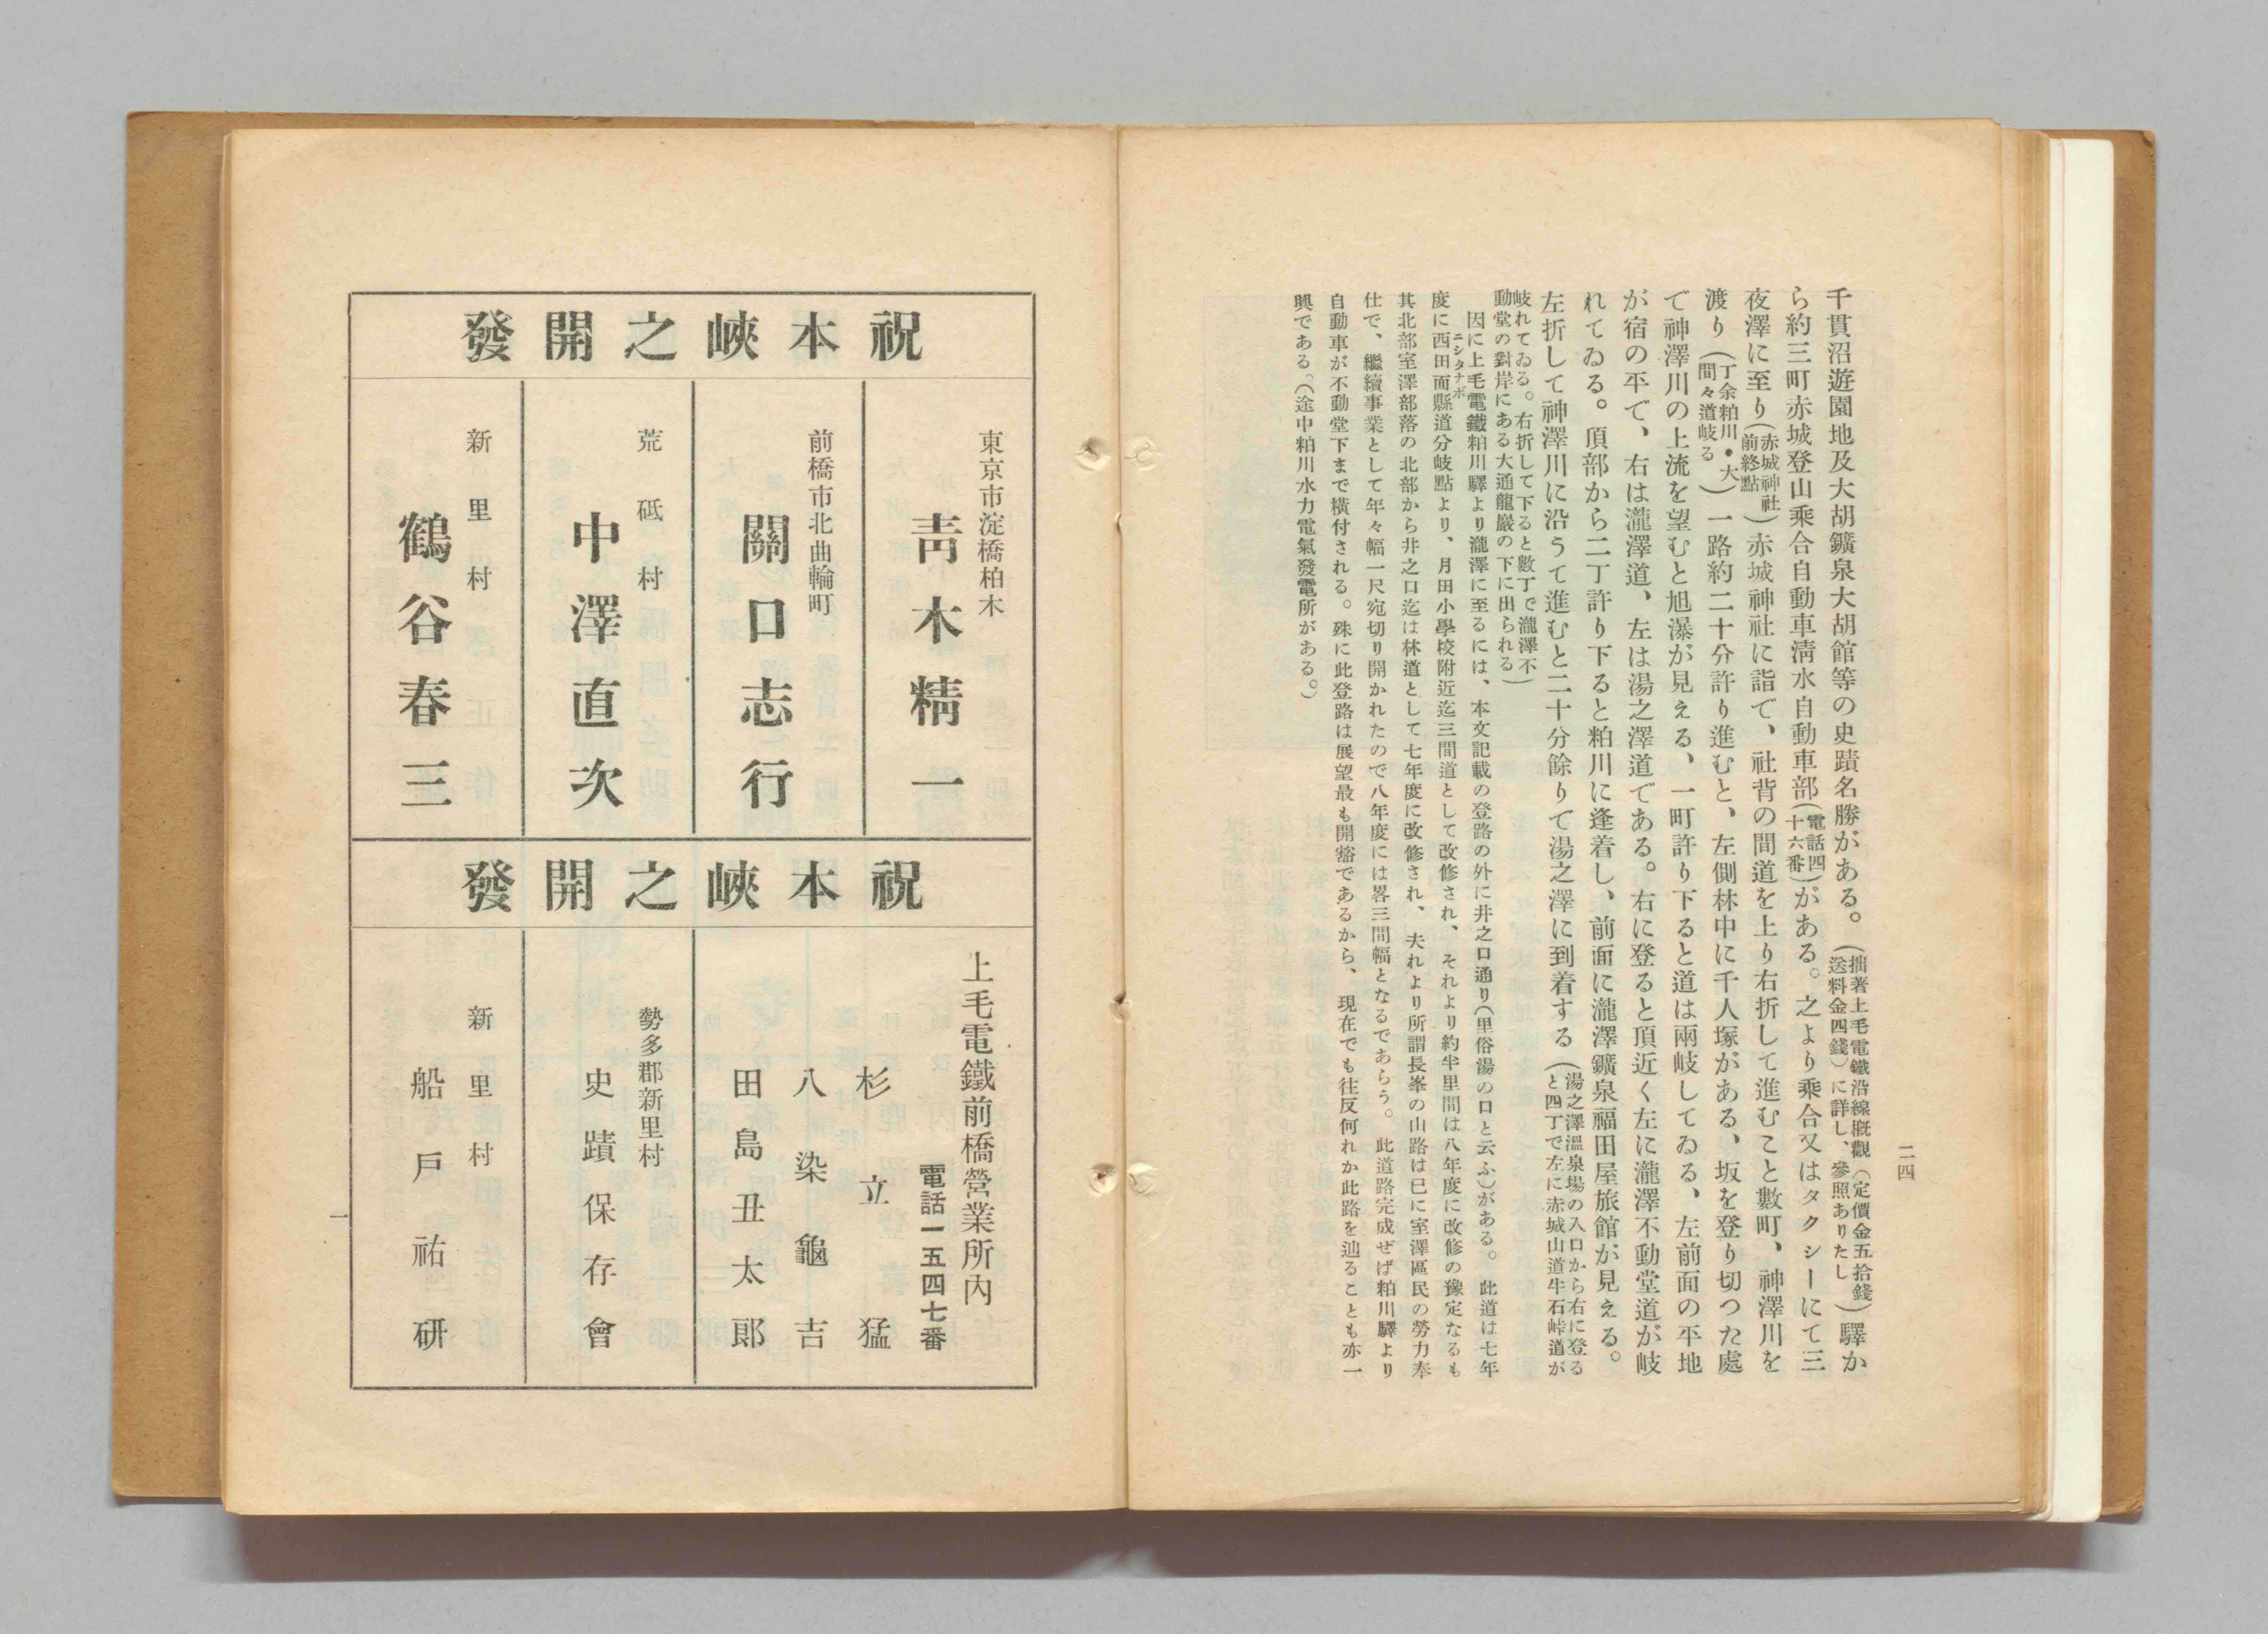 二四
千貫沼遊園地及大胡鑛泉大胡館等の史蹟名勝がある。(拙著上毛電鐵沿線槪觀(定價金五拾錢送料金四錢)に詳し、參照ありたし)驛か
ら約三町赤城登山乘合自動車淸水自動車部(電話四十六番)がある。之より乘合又はタクシーにて三
夜澤に至り(赤城神社前終點)赤城神社に詣で、社背の間道を上り右折して進むこと數町、神澤川を
渡り(丁余粕川・大間々道岐る)一路約二十分許り進むと、左側林中に千人塚がある、坂を登り切つた處
で神澤川の上流を望むと旭瀑が見える、一町許り下ると道は兩岐してゐる、左前面の平地
が宿の平で、右は瀧澤道、左は湯之澤道である。右に登ると頂近く左に瀧澤不動堂道が岐
れてゐる。頂部から二丁許り下ると粕川に逢着し、前面に瀧澤鑛泉福田屋旅館が見える。
左折して神澤川に沿うて進むと二十分餘りで湯之澤に到着する(湯之澤溫泉場の入口から右に登ると四丁で左に赤城山道牛石峠道が
岐れてゐる。右折して下ると數丁で瀧澤不動堂の對岸にある大通龍巖の下に出られる)
因に上毛電鐵粕川驛より瀧澤に至るには、本文記載の登路の外に井之口通り(里俗湯の口と云ふ)がある。此道は七年
度に西田面縣道分岐點より、月田小學校附近迄三間道として改修され、それより約半里間は八年度に改修の豫定なるも
ニシタナボ
其北部室澤部落の北部から井之口迄は林道として七年度に改修され、夫れより所謂長峯の山路は已に室澤區民の勞力奉
仕で、繼續事業として年々幅一尺宛切り開かれたので八年度には畧三間幅となるであらう。此道路完成せば粕川驛より
自動車が不動堂下まで橫付される。殊に此登路は展望最も開豁であるから、現在でも往反何れか此路を辿ることも亦一
興である。(途中粕川水力電氣發電所がある。)
發開之峽本祝
東京市淀橋柏木
靑木精一
前橋市北曲輪町
關口志行
荒砥村
中澤直次
新里村
鶴谷春三
發開之峽本祝
上毛電鐵前橋營業所內
電話一五四七番
杉立猛
八染龜吉
田島丑太郞
勢多郡新里村
史蹟保存會
新里村
船戶祐硏
一